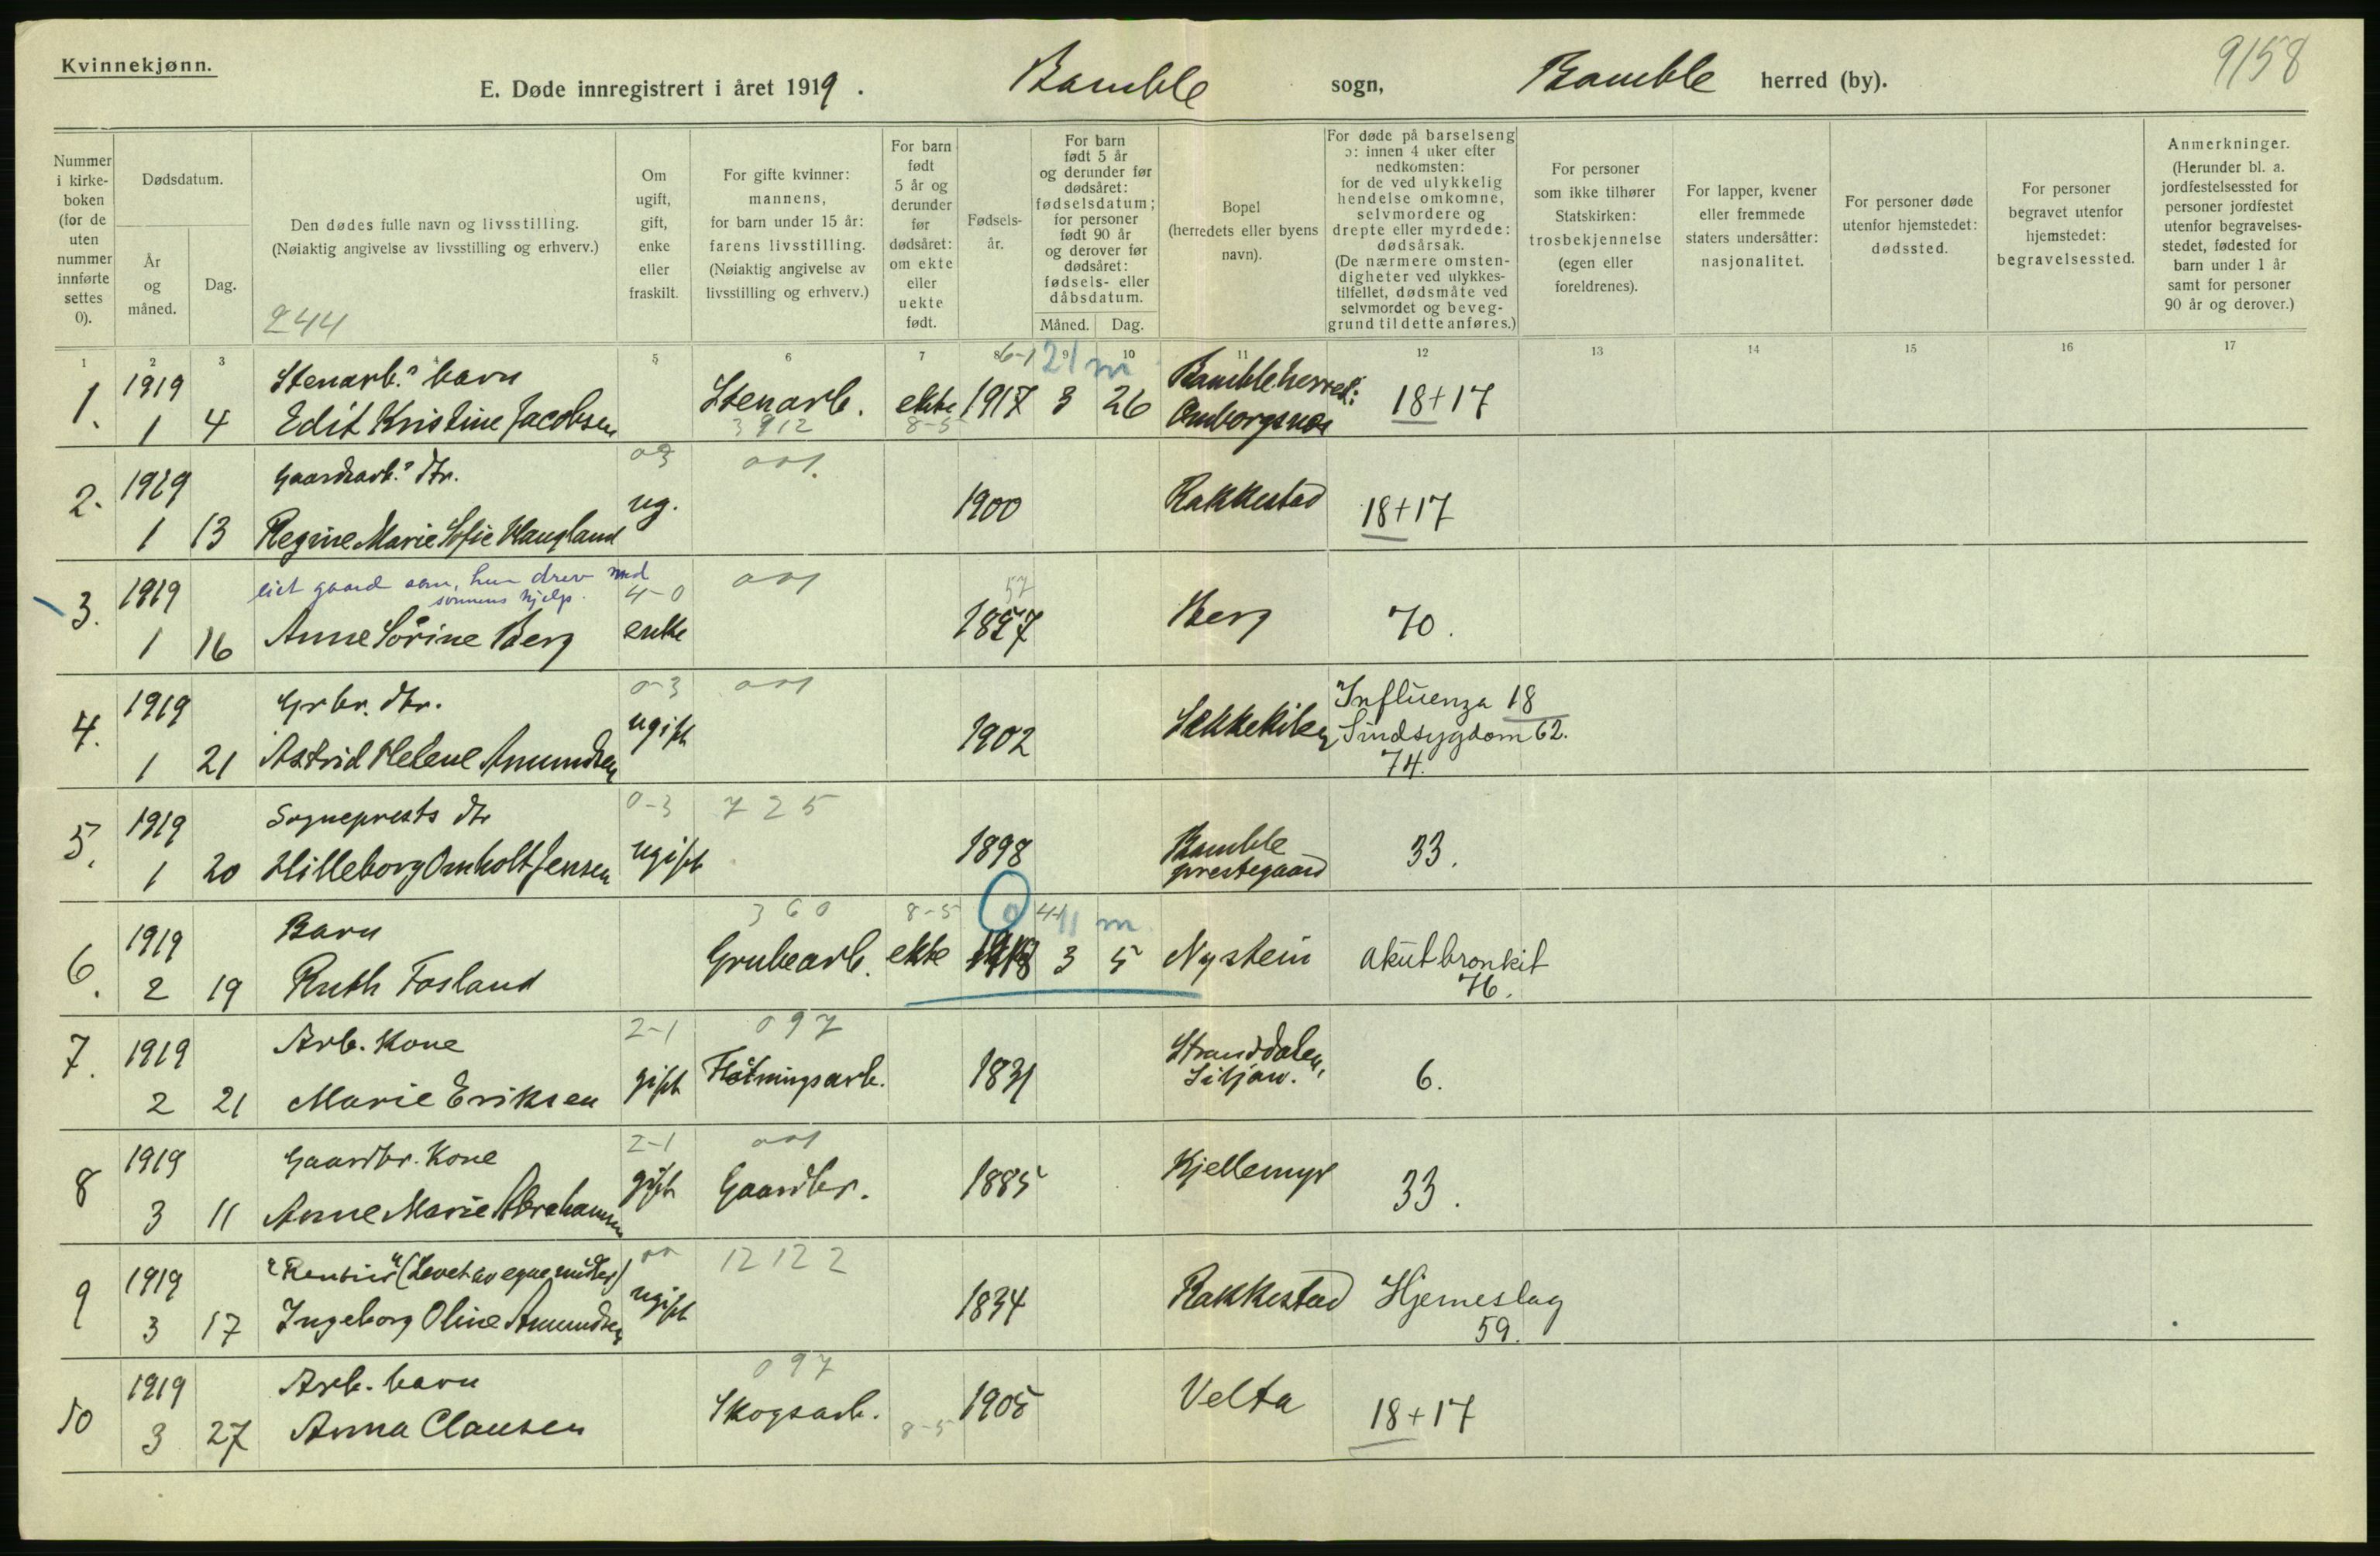 Kvinnekjønn.
9158
E. Døde innregistrert i året 1919. Bamble sogn, Bamble herred (by).
Nummer i kirke-boken (for de uten nummer innførte settes 0).
Dødsdatum.
År og måned.
Dag.
Den dødes fulle navn og livsstilling.
(Nøiaktig angivelse av livsstilling og erhverv.)
244
Om ugift, gift, enke eller fraskilt.
For gifte kvinner: mannens, for barn under 15 år: farens livsstilling. (Nøiaktig angivelse av livsstilling og erhverv.)
For barn født 5 år og derunder før dødsåret: om ekte eller uekte født.
Fødsels-år.
For barn født 5 år og derunder før dødsåret: fødselsdatum; for personer født 90 år og derover før dødsåret: fødsels- eller dåbsdatum.
Måned. Dag.
Bopel (herredets eller byens navn).
For døde på barselseng ɔ: innen 4 uker efter nedkomsten: for de ved ulykkelig hendelse omkomne, selvmordere og drepte eller myrdede: dødsårsak. (De nærmere omsten-digheter ved ulykkes-tilfellet, dødsmåte ved selvmordet og beveg-grund til dette anføres.)
For personer som ikke tilhører Statskirken: trosbekjennelse (egen eller foreldrenes).
For lapper, kvener eller fremmede staters undersåtter: nasjonalitet.
For personer døde utenfor hjemstedet: dødssted.
For personer begravet utenfor hjemstedet: begravelsessted.
Anmerkninger. (Herunder bl. a. jordfestelsessted for personer jordfestet utenfor begravelses-stedet, fødested for barn under 1 år samt for personer 90 år og derover.)
1 2 3 5 6 7 8 9 10 11 12 13 14 15 16 17
6-1 21 m
1. 1919 Stenarb.s barn Bambleherred:
1 4 Edit Kristine Jacobsen Stenarb. ekte 1917 3 26 18+17
3912 8-5
2. 1919 Gaardsarb.s dtr. 0-3 001
1 13 Regine Marie Sofie Haugland ug. 1900 Rakkestad 18+17
3. 1919 eiet gaard som hun drev med sönnens hjelp. 4-0 001 57
1 16 Anne Sörine Berg enke 1857 Berg 70.
4. 1919 Grbr. dtr. 0-3 001
1 21 Astrid Helene Amundsen ugift 1902 Influenza 18
Sindsygdom 62.
74.
5. 1919 Sogneprests dtr 0-3 725
1 20 Hilleborg Omholt Jensen ugift 1898 Bamble prestegaard 33.
6. 1919 Barn 360 8-5 0 4-1 11 m.
2 19 Ruth Fosland Grubearb. ekte 1918 3 5 Nystein akut bronkit
76.
7. 1919 Arb. Kone 2-1 097
2 21 Marie Eriksen gift Flötningsarb. 1831 Stranddalen, Siljan. 6.
8 1919 Gaardbr. Kone 2-1 001
3 11 Anne Marie Abrahamsen gift Gaardbr. 1885 Kjellemyr 33.
9 1919 "Rentier" (Levet av egne midler) 12 12 2
3 17 Ingeborg Oline Amundsen ugift 1834 Rakkestad Hjerneslag
59.
10 1919 Arb. barn 097
3 27 Anna Clausen Skogsarb. 8-5 1905 Velta 18+17